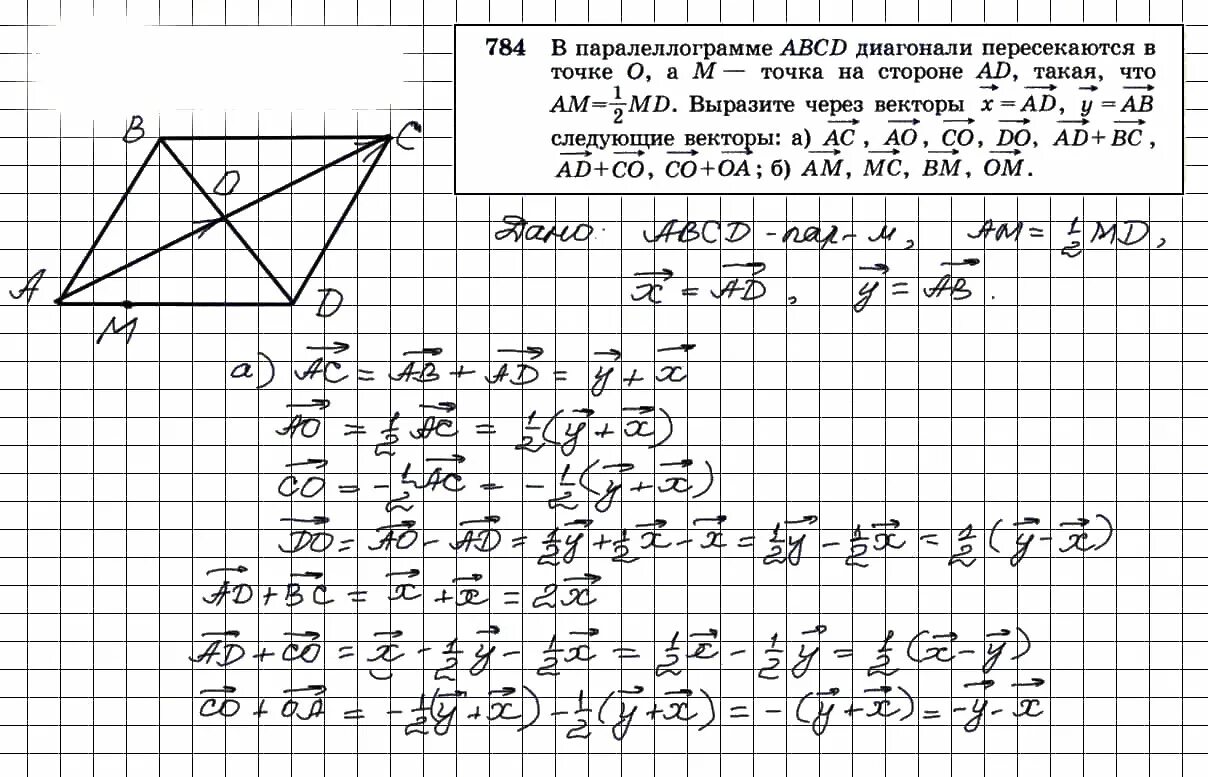 784 В паралеллограмме ABCD диагонали пересекаются в
точке O, а M — точка на стороне AD, такая, что
AM=1/2MD. Выразите через векторы x⃗ = AD⃗, y⃗ = AB⃗
следующие векторы: а) AC⃗, AO⃗, CO⃗, DO⃗, AD⃗+BC⃗,
AD⃗+CO⃗, CO⃗+OA⃗; б) AM⃗, MC⃗, BM⃗, OM⃗.
B
C
O
A
M
D
Дано: ABCD - пар-м, AM = 1/2 MD,
x⃗ = AD⃗, y⃗ = AB⃗.
а) AC⃗ = AB⃗ + AD⃗ = y⃗ + x⃗
AO⃗ = 1/2 AC⃗ = 1/2(y⃗ + x⃗)
CO⃗ = -1/2 AC⃗ = -1/2(y⃗ + x⃗)
DO⃗ = AO⃗ - AD⃗ = 1/2y⃗ + 1/2x⃗ - x⃗ = 1/2y⃗ - 1/2x⃗ = 1/2(y⃗ - x⃗)
AD⃗ + BC⃗ = x⃗ + x⃗ = 2x⃗
AD⃗ + CO⃗ = x⃗ - 1/2y⃗ - 1/2x⃗ = 1/2x⃗ - 1/2y⃗ = 1/2(x⃗ - y⃗)
CO⃗ + OA⃗ = -1/2(y⃗ + x⃗) - 1/2(y⃗ + x⃗) = -(y⃗ + x⃗) = -y⃗ - x⃗